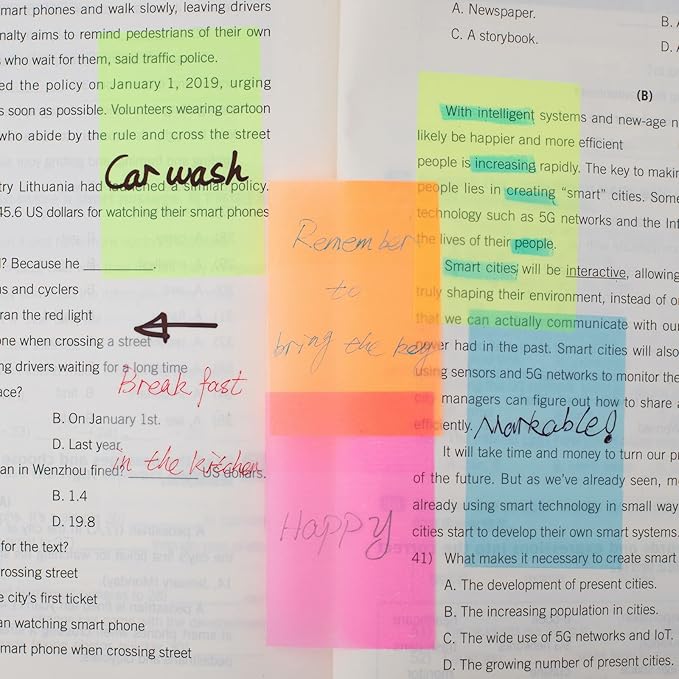 smart phones and walk slowly, leaving drivers
nalty aims to remind pedestrians of their own
s who wait for them, said traffic police.
ed the policy on January 1, 2019, urging
s soon as possible. Volunteers wearing cartoon
who abide by the rule and cross the street
Car wash
try Lithuania had launched a similar policy.
45.6 US dollars for watching their smart phones
l? Because he ________.
ns and cyclers
ran the red light
one when crossing a street
ng drivers waiting for a long time
ace?
Break fast
B. On January 1st.
D. Last year.
in the kitchen
an in Wenzhou fined? ________ US dollars.
B. 1.4
D. 19.8
for the text?
rossing street
e city's first ticket
an watching smart phone
smart phone when crossing street
Remember
to
bring the key
Happy
A. Newspaper.
B.
C. A storybook.
D.
(B)
With intelligent systems and new-age
likely be happier and more efficient
people is increasing rapidly. The key to making
people lies in creating "smart" cities. Some
technology such as 5G networks and the Int
the lives of their people.
Smart cities will be interactive, allowing
truly shaping their environment, instead of
that we can actually communicate with our
power had in the past. Smart cities will also
using sensors and 5G networks to monitor the
city managers can figure out how to share
efficiently.
Markable!
It will take time and money to turn our
of the future. But as we've already seen,
already using smart technology in small way
cities start to develop their own smart systems.
41) What makes it necessary to create smart
A. The development of present cities.
B. The increasing population in cities.
C. The wide use of 5G networks and IoT.
D. The growing number of present cities.